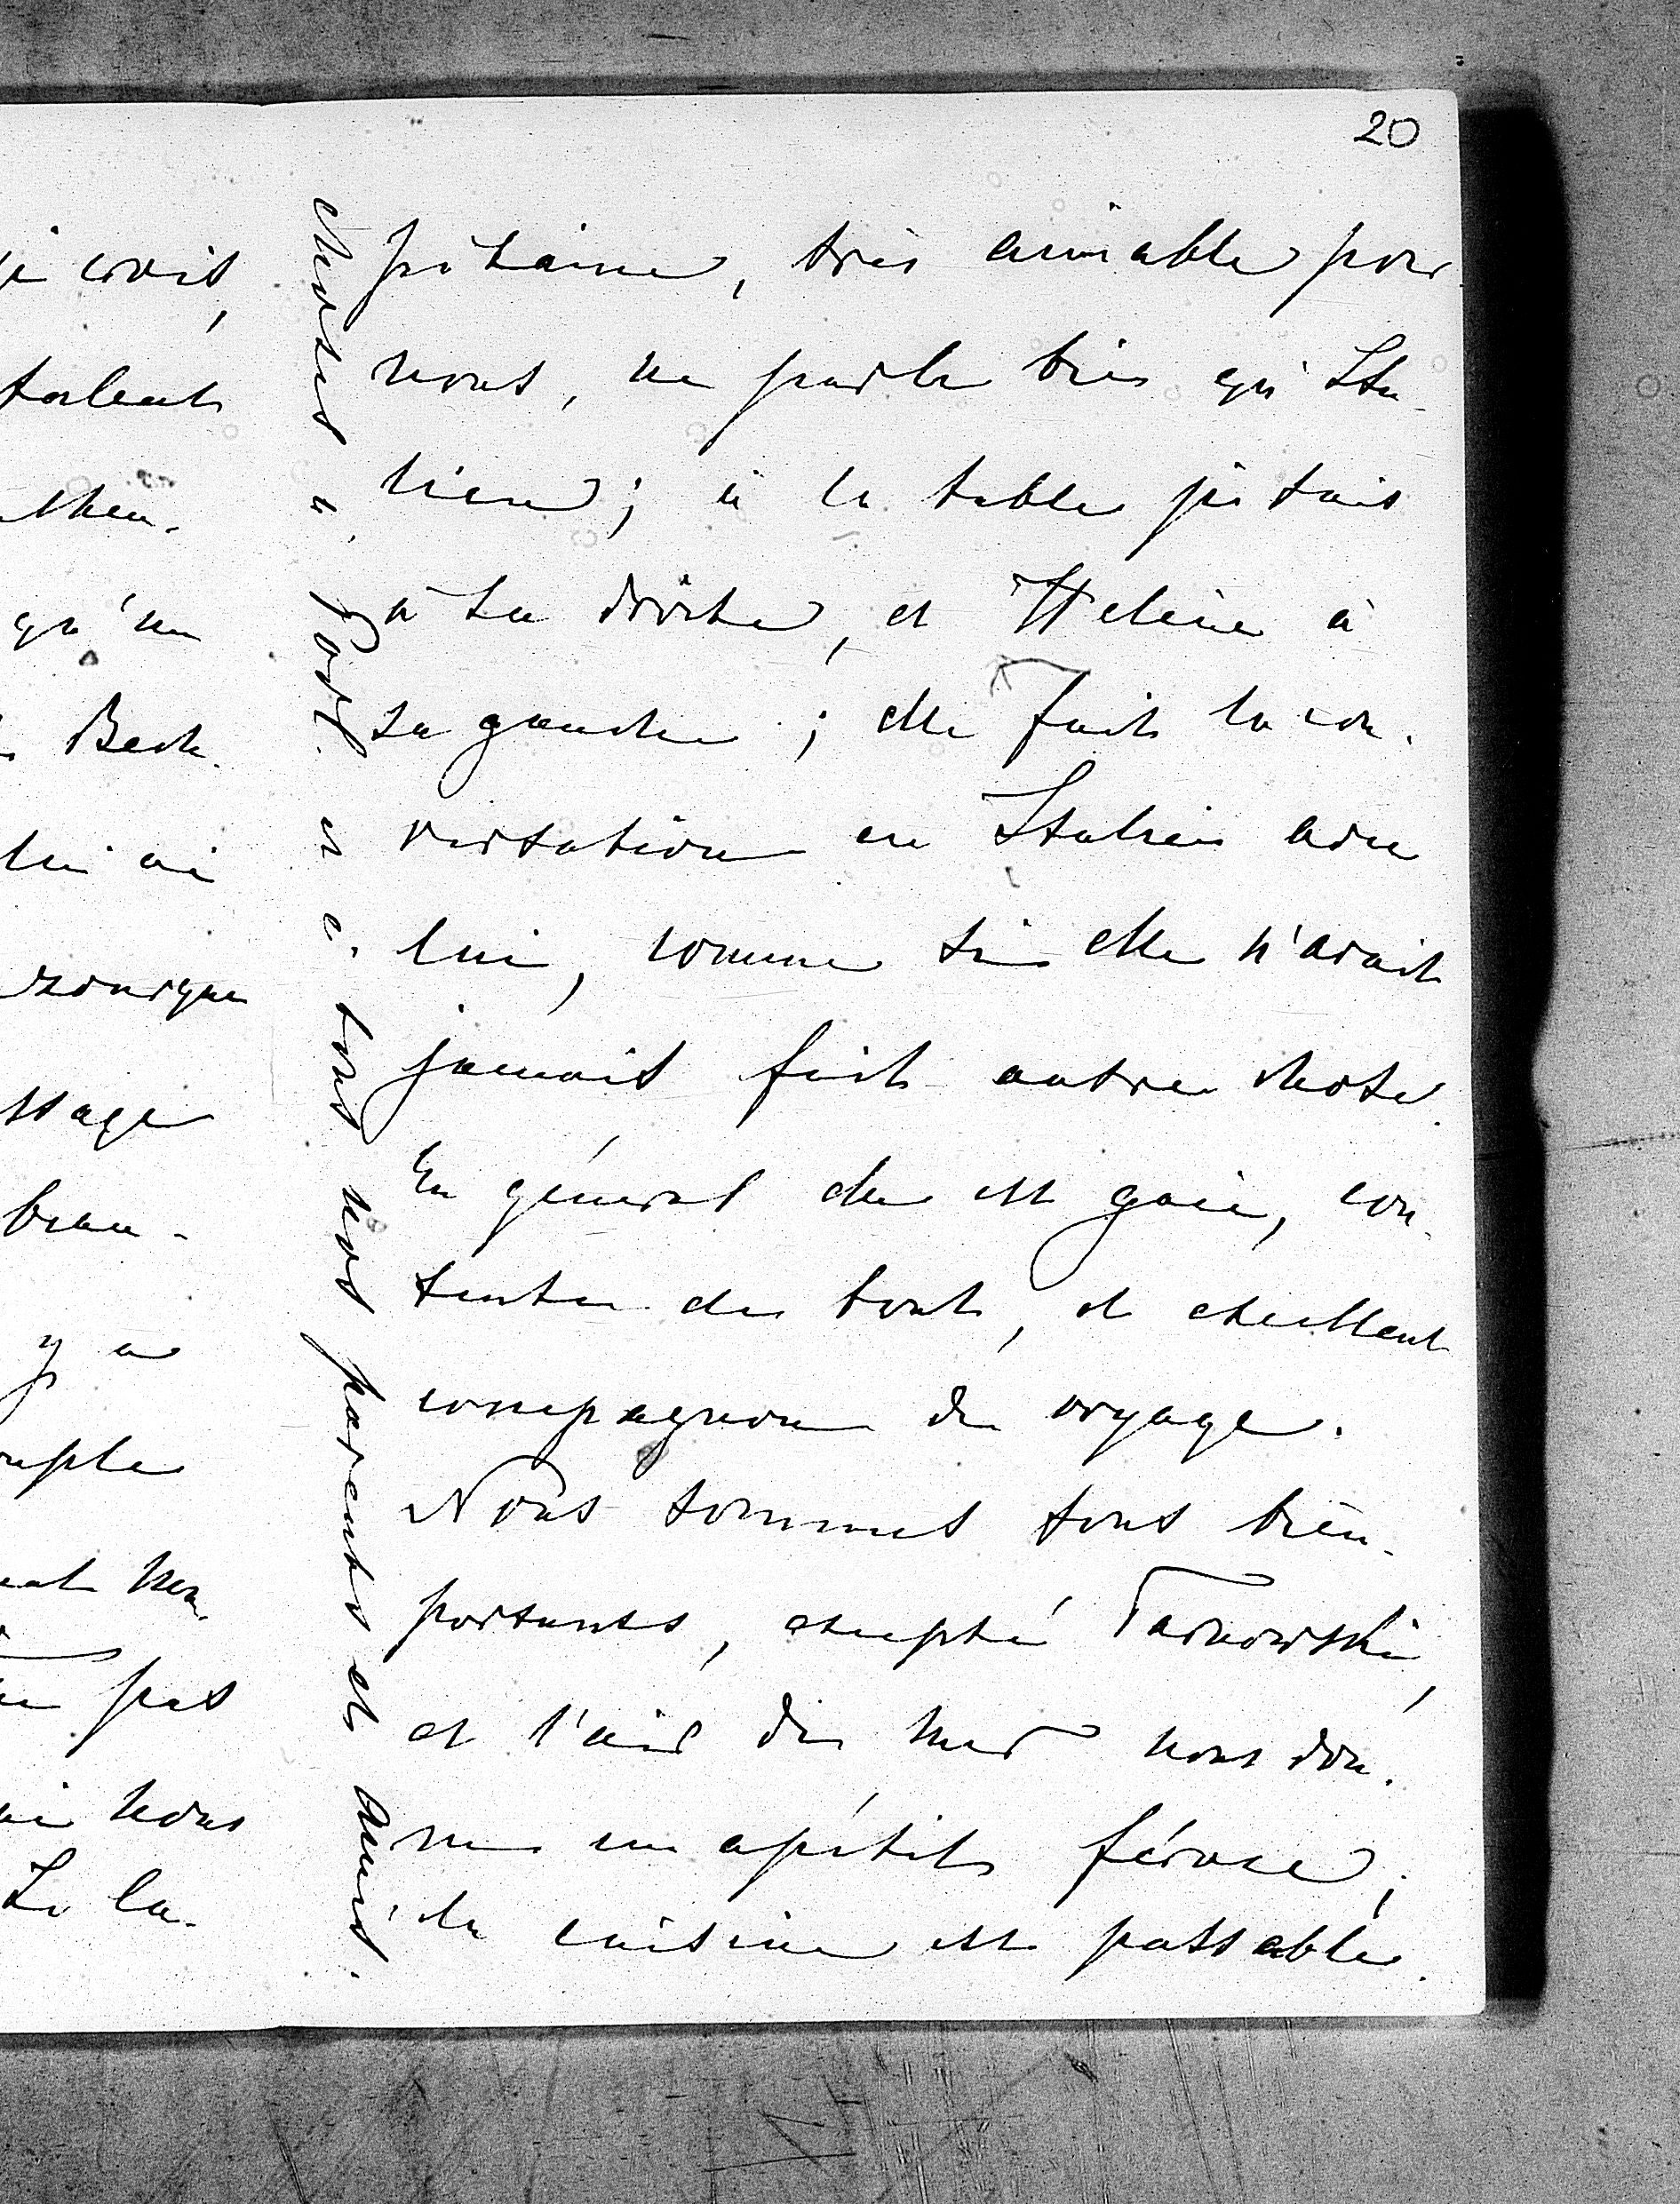 20
pitaine, très aimable pour
nous, ne parle bien qu'Ita-
lien; à la table j'étais
à sa droite, et Helène à
sa gauche; elle fait la con-
versation en Italien avec
lui, comme si elle n'avait
jamais fait autre chose.
En général elle est gaie, con-
tente de tout, et excellent
compagnon de voyage.
Nous sommes tous bien-
portants, excepté Tarnowski,
et l'air de mer nous don-
ne un apétit féroce;
la cuisine est passable.
choses à Podl. et à tous nos parents et amis.
je crois,
talent
qu'un
Beck
lui ai
ssage
beau-
y a
pas
nous
La la-